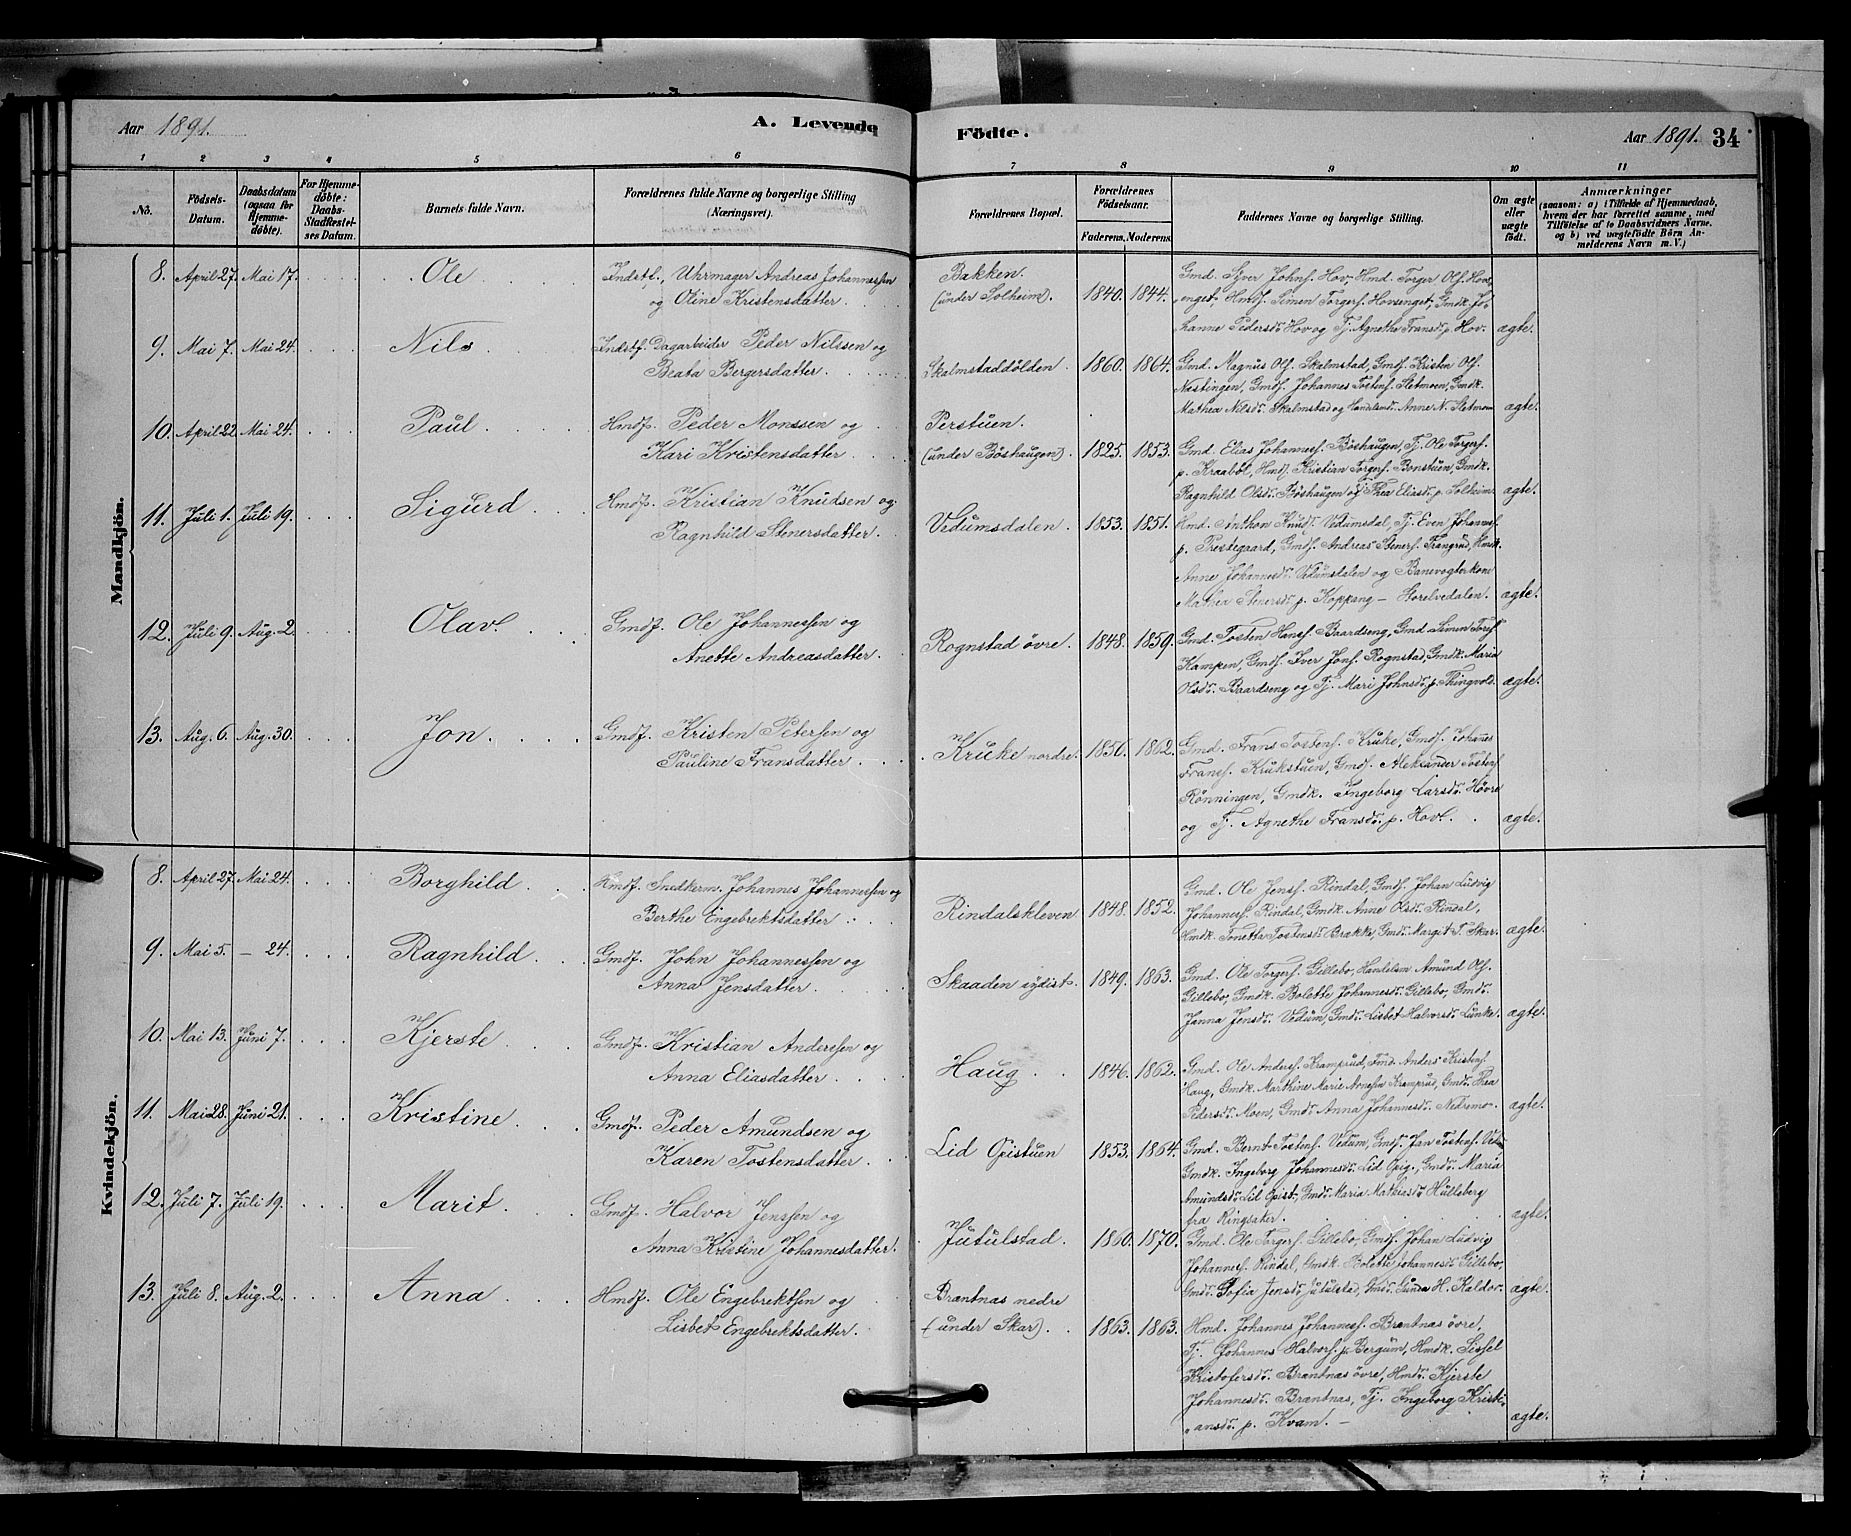 Aar 1891. A. Levende
Födte. Aar 1891. 34
1 2 3 4 5 6 7 8 9 10 11
No. Födsels-Datum. Daabsdatum (ogsaa for Hjemmedöbte). For Hjemmedöbte: Daabs-Stadfæstelses Datum. Barnets fulde Navn. Forældrenes fulde Navne og borgerlige Stilling (Næringsvei). Forældrenes Bopæl. Forældrenes Födselsaar. Faderens. Moderens. Faddernes Navne og borgerlige Stilling. Om ægte eller uægte födt. Anmærkninger (saasom: a) i Tilfælde af Hjemmedaab, hvem der har forrettet samme, med Tilföielse af to Daabsvidners Navne, og b) ved uægtefödte Börn Anmelderens Navn m.V.)
Mandkjön.
8. April 27. Mai 17. Ole Indstf., Uhrmager Andreas Johannessen
og Oline Kristensdatter.
Bakken.
(under Solheim). 1840. 1844.
Gmd. Syver Johnf. Hov, Hmd. Torger Olf. Hovs-
enget, Hmdf. Simen Torgerf. Hovsenget, Gmdk. Jo-
hanne Pedersd. Hov og Tj. Agnethe Fransd. p. Hov. ægte.
9. Mai 7. Mai 24. Nils Indstf. Dagarbeider Peder Nilssen og
Beata Bergersdatter.
Skalmstaddölden. 1860. 1864.
Gmd. Magnus Olf. Skalmstad, Gmdf. Kristen Olf.
Nastingen, Gmdf. Johannes Tostenf. Sletmoen, Gmdk.
Mathea Nilsd. Skalmstad og Handelsmd. Anne N. Sletmoen ægte.
10. April 22. Mai 24. Paul Hmdf. Peder Monssen og
Kari Kristensdatter.
Perstuen.
(under Böshaugen). 1825. 1853.
Gmd. Elias Johannesf. Böshaugen, Tj. Ole Torgerf.
p. Kraaböl, Hmdf. Kristian Torgerf. Bonstuen, Gmdk.
Ragnhild Olsd. Böshaugen og Tj. Thea Eliasd. p. Solheim. ægte.
11. Juli 1. Juli 19. Sigurd Hmdf. Kristian Knudsen og
Ragnhild Stenersdatter.
Vedumsdalen. 1853. 1851.
Hmd. Anthon Knudf. Vedumsdal, Tj. Even Johannesf.
p. Prestegaard, Gmdf. Andreas Stenerf. Trangrud, Hmdk.
Anne Johannesd. Vedumsdalen og Banevogterkone
Mathea Stenersd. p. Koppang – Storelvedalen. ægte.
12. Juli 9. Aug. 2. Olav. Gmdf. Ole Johannessen og
Anette Andreasdatter.
Rognstad övre. 1848. 1859.
Gmd. Tosten Hansf. Baardseng, Gmd. Simen Toref.
Kampen, Gmdf. Iver Jonf. Rognstad, Gmdk. Maria
Olsd. Baardseng og Tj. Mari Johnsd. p. Thingvold. ægte.
13. Aug. 6. Aug. 30. Jon. Gmdf. Kristen Petersen og
Pauline Fransdatter.
Kruke nordre. 1856. 1862.
Gmd. Frans Tostenf. Kruke, Gmdf. Johannes
Fransf. Krukstuen, Gmdf. Aleksander Tostenf.
Rönningen, Gmdk. Ingeborg Larsd. Hövre
og Tj. Agnethe Fransd. p. Hov. ægte.
Kvindekjön.
8. April 27. Mai 24. Borghild Hmdf. Snedkerm. Johannes Johannessen og
Berthe Engebrektsdatter.
Rindalskleven 1848. 1852.
Gmd. Ole Jensf. Rindal, Gmdf. Johan Ludvig
Johannesf. Rindal, Gmdk. Anne Olsd. Rindal,
Hmdk. Tonetta Tostensd. Brække, Gmd. Margit T. Skar. ægte.
9. Mai 5. – 24. Ragnhild Gmdf. John Johannessen og
Anna Jensdatter.
Skaaden sydist. 1849. 1863.
Gmd. Ole Torgerf. Gillebo, Handelsm. Amund Olf.
Gillebo, Gmdk. Bolette Johannesd. Gillebo, Gmd.
Janna Jensd. Vedum, Gmd. Lisbet Halvorsd. Lunke. ægte.
10. Mai 13. Juni 7. Kjerste Gmdf. Kristian Anderssen og
Anna Eliasdatter.
Haug 1846. 1862.
Gmd. Ole Andersf. Kramprud, Fmd. Anders Kristenf.
Haug, Gmdk. Marthine Marie Arnesen Kramprud, Gmd. Thea
Pedersd. Moen, Gmd. Anna Johannesd. Nedremo. ægte.
11. Mai 28. Juni 21. Kristine Gmdf. Peder Amundsen og
Karen Tostensdatter.
Lid Opistuen 1853. 1864.
Gmd. Bernt Tostenf. Vedum, Gmdf. Jan Tostenf. Vedum
Gmdk. Ingeborg Johannesd. Lid Opig., Gmd. Maria
Amundsd. Lid Opist., Gmd. Maria Mathiasd. Hullsberg
fra Ringsaker. ægte.
12. Juli 7. Juli 19. Marit Gmdf. Halvor Jenssen og
Anna Kristine Johannesdatter.
Jutulstad. 1860. 1870.
Gmd. Ole Torgerf. Gillebo, Gmdf. Johan Ludvig
Johannesf. Rindal, Gmdk. Bolette Johannesd. Gillebo,
Gmd. Sofia Jensd. Jutulstad, Gmd. Gunda H. Kaldor. ægte.
13. Juli 8. Aug. 2. Anna Hmdf. Ole Engebrektsen og
Lisbet Engebrektsdatter.
Bræntnas nedre
(under Skar). 1863. 1863.
Hmd. Johannes Johannesf. Bræntnas övre,
Tj. Johannes Halvorf. p. Bergum, Hmdk. Sissel
Kristofersd. Bræntnas övre, Hmd. Kjerste
Johannesd. Bræntnas, Tj. Ingeborg Kristi-
ansd. p. Kvam. – ægte.